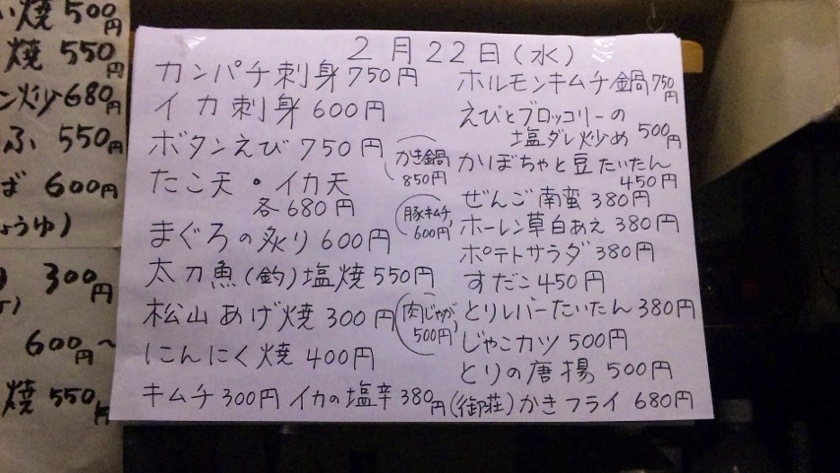 い焼 500円
焼 550円
ン炒 680円
ふ 550円
ば 600円
ょうゆ)
300円
600円〜
焼 550円
2月22日(水)
カンパチ刺身 750円
イカ刺身 600円
ボタンえび 750円
たこ天・イカ天
各680円
まぐろの炙り 600円
太刀魚(釣)塩焼 550円
松山あげ焼 300円
にんにく焼 400円
キムチ 300円 イカの塩辛 380円
かき鍋
850円
豚キムチ
600円
肉じゃが
500円
ホルモンキムチ鍋 750円
えびとブロッコリーの
塩ダレ炒め 500円
かぼちゃと豆たいたん
450円
ぜんご南蛮 380円
ホーレン草白あえ 380円
ポテトサラダ 380円
すだこ 450円
とりレバーたいたん 380円
じゃこカツ 500円
とりの唐揚 500円
(御荘)かきフライ 680円